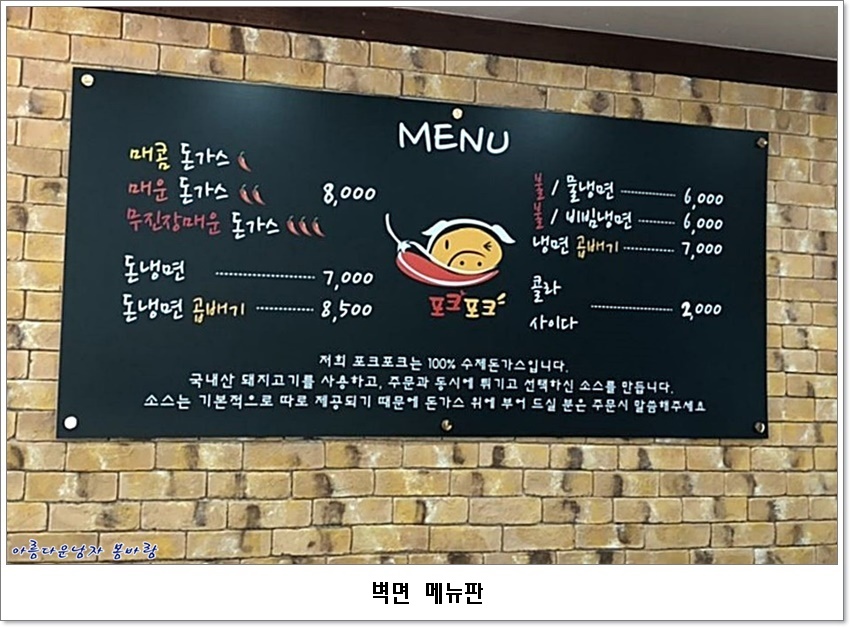 MENU
매콤 돈가스
매운 돈가스 8,000
무진장매운 돈가스
돈냉면 ---------- 7,000
돈냉면 곱배기 ---------- 8,500
포크포크
불 / 물냉면 ---------- 6,000
불 / 비빔냉면 ---------- 6,000
냉면 곱배기 ---------- 7,000
콜라
사이다 ---------- 2,000
저희 포크포크는 100% 수제돈가스입니다.
국내산 돼지고기를 사용하고, 주문과 동시에 튀기고 선택하신 소스를 만듭니다.
소스는 기본적으로 따로 제공되기 때문에 돈가스 위에 부어 드실 분은 주문시 말씀해주세요
아름다운남자 봉바람
벽면 메뉴판